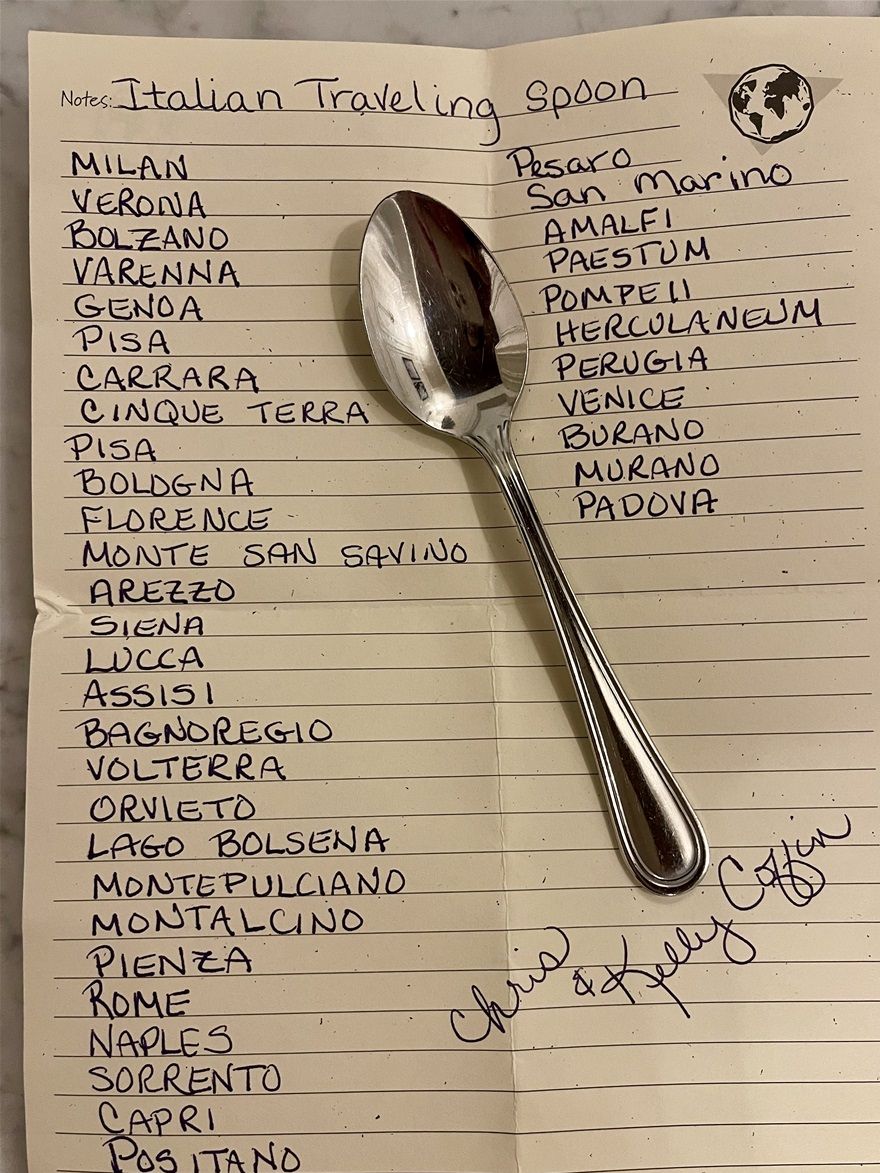 Notes: Italian Traveling Spoon
MILAN
VERONA
BOLZANO
VARENNA
GENOA
PISA
CARRARA
CINQUE TERRA
PISA
BOLOGNA
FLORENCE
MONTE SAN SAVINO
AREZZO
SIENA
LUCCA
ASSISI
BAGNOREGIO
VOLTERRA
ORVIETO
LAGO BOLSENA
MONTEPULCIANO
MONTALCINO
PIENZA
ROME
NAPLES
SORRENTO
CAPRI
POSITANO
Pesaro
San Marino
AMALFI
PAESTUM
POMPEII
HERCULANEUM
PERUGIA
VENICE
BURANO
MURANO
PADOVA
Chris & Kelly Coffin